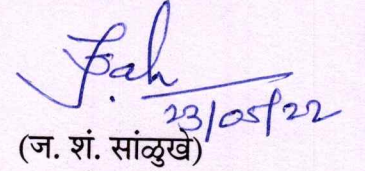 23/05/22
(ज. शं. सांळुखे)